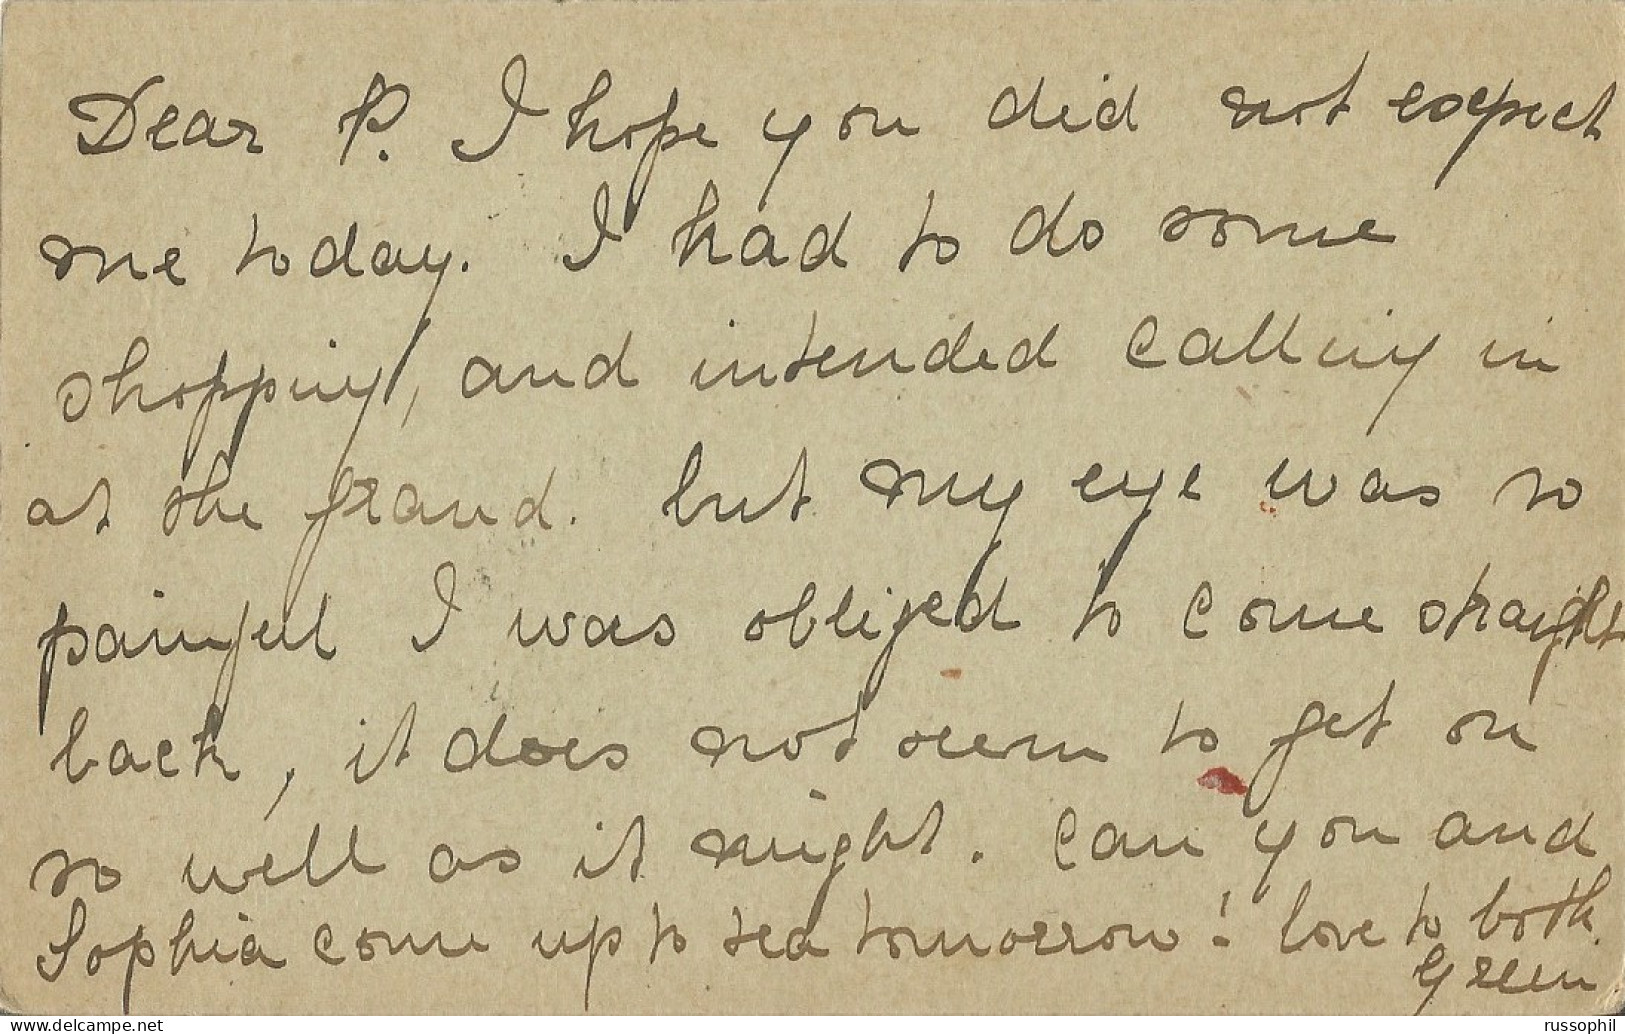 Dear P. I hope you did not expect
me today. I had to do some
shopping, and intended calling in
at the grand. but my eye was so
painful I was obliged to come straight
back, it does not seem to get on
so well as it might. Can you and
Sophia come up to tea tomorrow! love to both.
Green
russophil